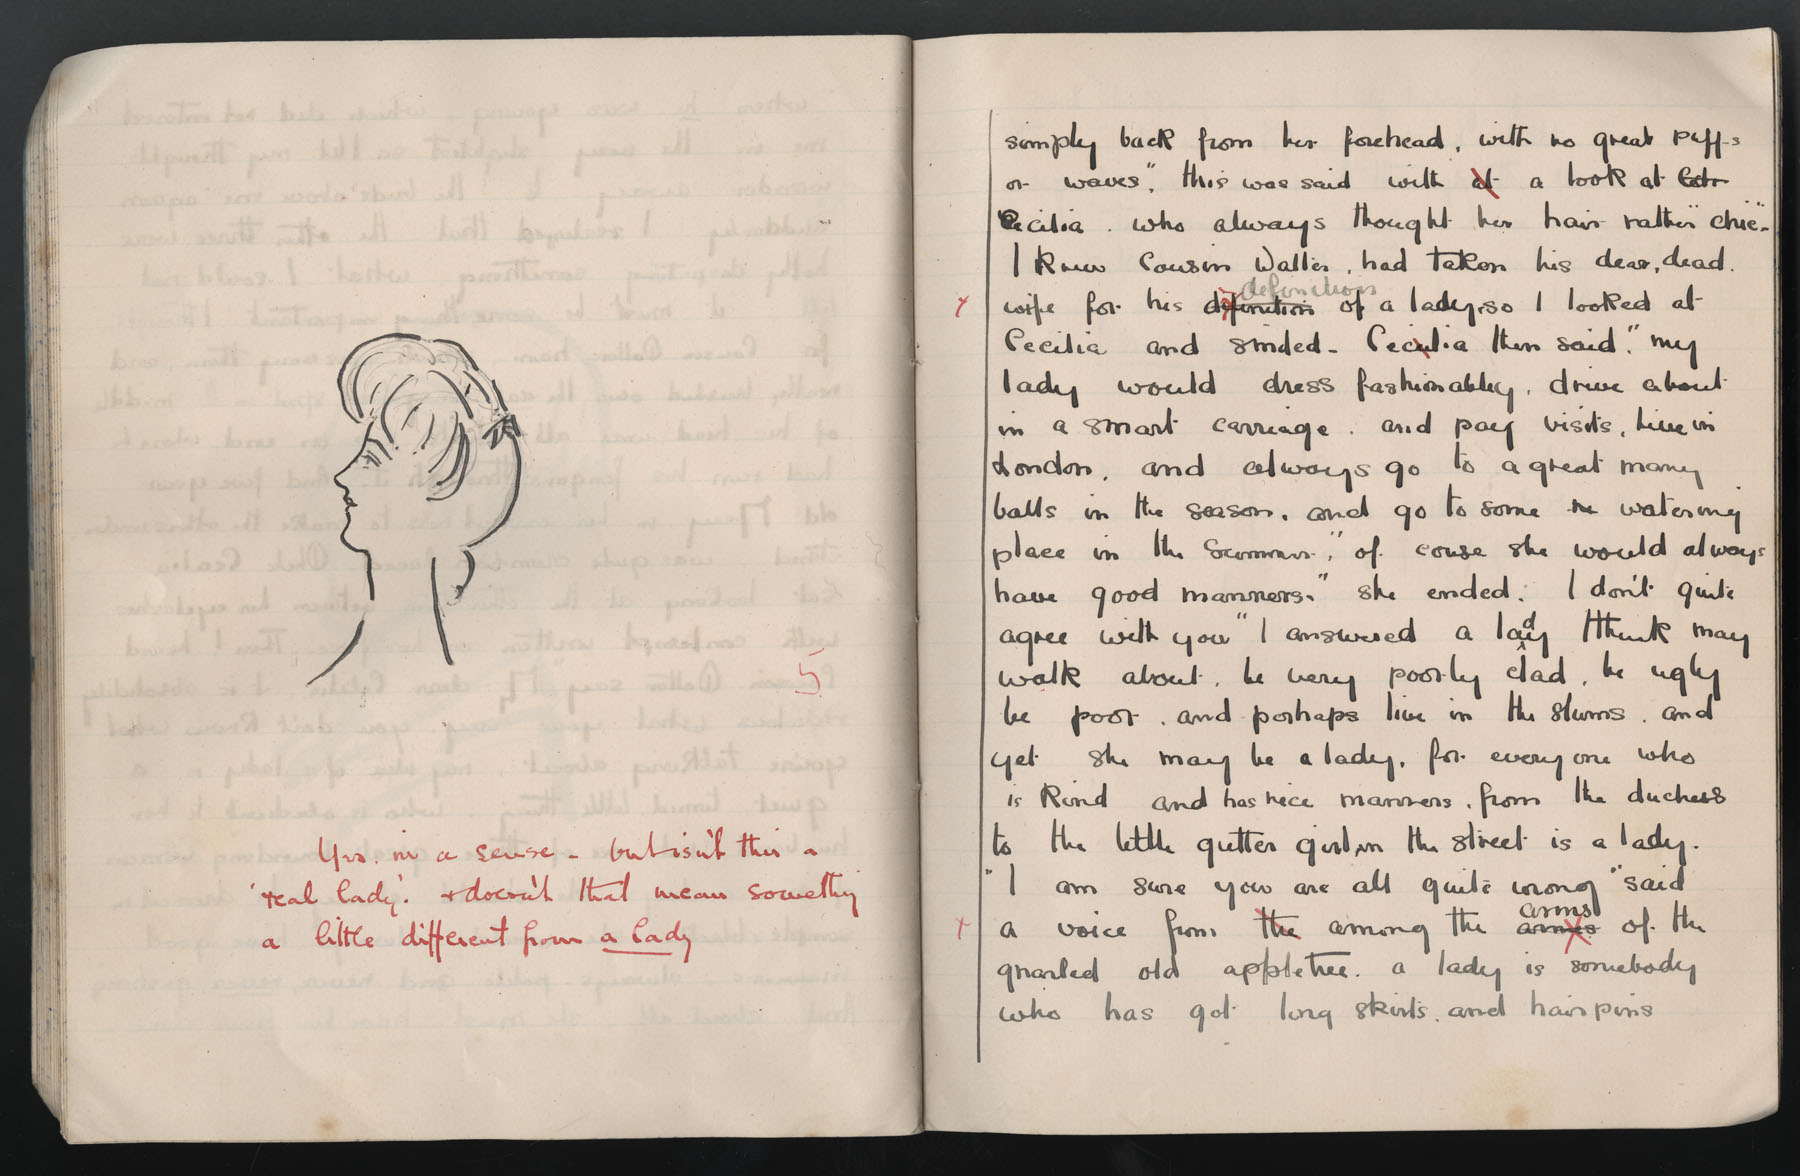 5
Yes. in a sense - but isn't this a
'real lady'. + doesn't that mean something
a little different from a lady
simply back from her forehead, with no great puffs
or waves", this was said with at a look at
Cecilia. who always thought her hair rather "chic"-
I knew Cousin Walter, had taken his dear, dead.
definition
x wife for his of a lady, so I looked at
Cecilia and smiled - Cecilia then said". my
lady would dress fashionabley, drive about
in a smart carriage. and pay visits, live in
London, and always go to a great many
balls in the season, and go to some watering
place in the Summer", of couse she would always
have good manners." she ended. I don't quite
agree with you" I answered a lady I think may
walk about, be very poorly clad, be ugly
be poor. and perhaps live in the slums. and
yet she may be a lady, for every one who
is kind and has nice manners, from the duchess
to the little gutter girl, in the street is a lady.
"I am sure you are all quite wrong" said
arms
x a voice from the among the armes of the
gnarled old appletree. a lady is somebody
who has got long skirts, and hairpins